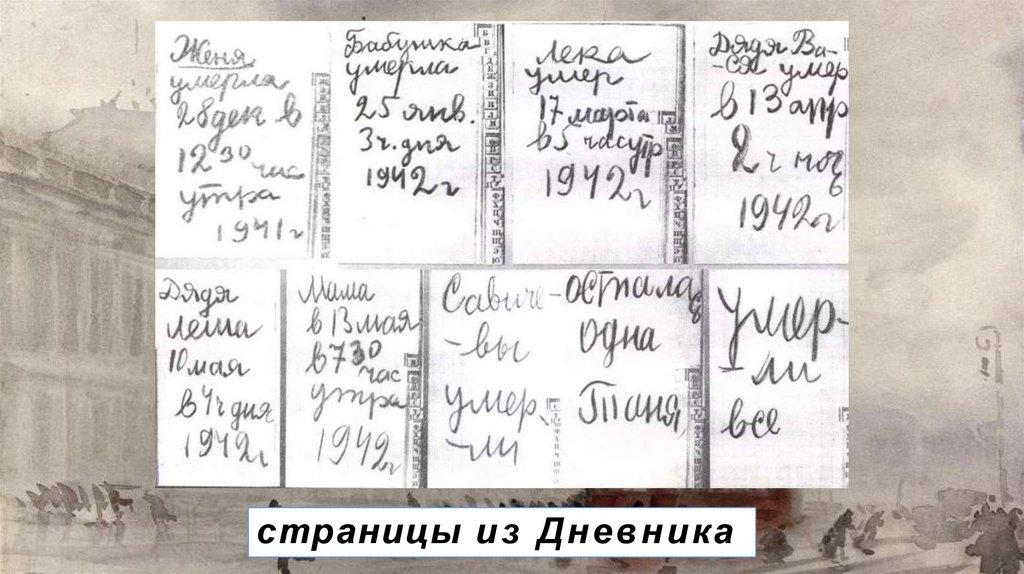 Женя
умерла
28 дек в
12 30 час
утра
1941 г
Бабушка
умерла
25 янв.
3 ч. дня
1942 г
Лека
умер
17 марта
в 5 час утр
1942 г
Дядя Ва-
-ся умер
в 13 апр
2 ч ноч
1942 г
Дядя
Леша
10 мая
в 4 ч дня
1942 г
Мама
в 13 мая
в 7 30
час
утра
1942 г
Савиче-
-вы
умер-
-ли
Осталась
одна
Таня
Умер-
-ли
все
страницы из Дневника